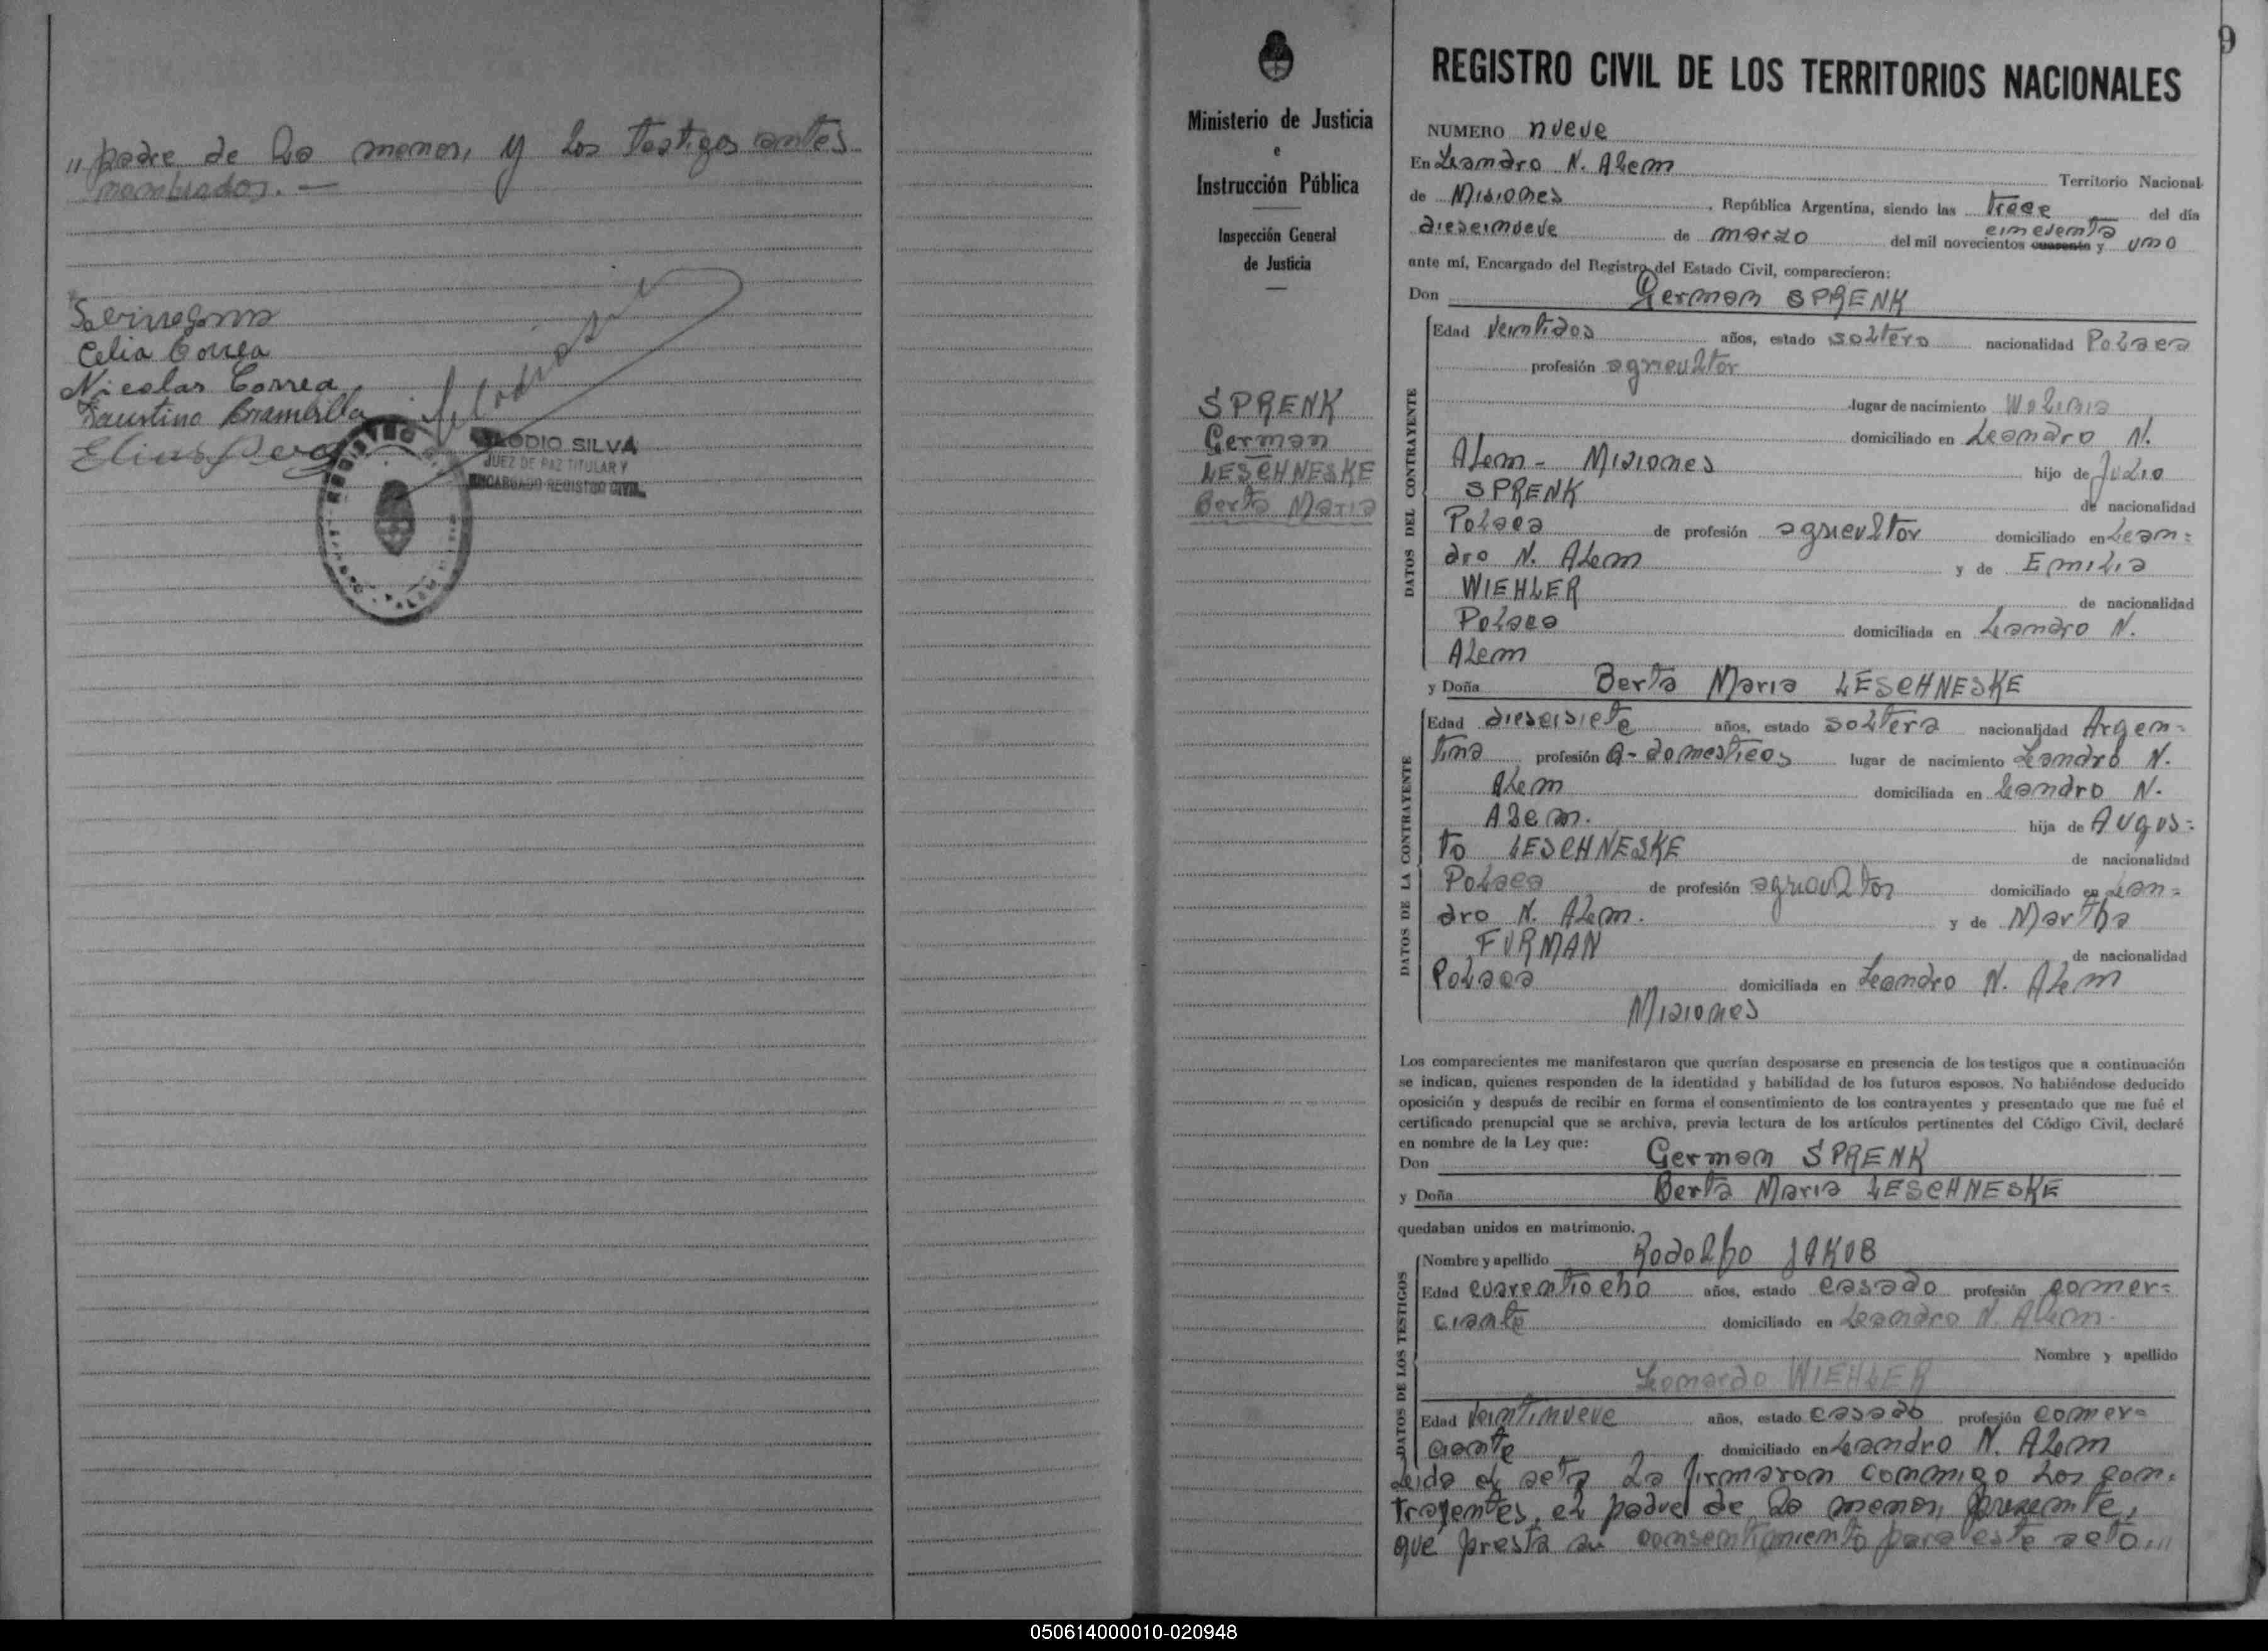 "padre de la menor, y los testigos antes
nombrados.—
Celia Correa
Nicolas Correa
Faustino Brambilla
ELODIO SILVA
JUEZ DE PAZ TITULAR Y
ENCARGADO REGISTRO CIVIL
Ministerio de Justicia
e
Instrucción Pública
Inspección General
de Justicia
SPRENK
German
LESCHNESKE
Berta Maria
9
REGISTRO CIVIL DE LOS TERRITORIOS NACIONALES
NUMERO nueve
En Leandro N. Alem Territorio Nacional
de Misiones, República Argentina, siendo las trece del día
dieseinueve de marzo del mil novecientos cuarenta cincuenta y uno
ante mí, Encargado del Registro del Estado Civil, comparecieron:
Don German SPRENK
DATOS DEL CONTRAYENTE
Edad veintidos años, estado soltero nacionalidad Polaca
profesión agricultor
lugar de nacimiento Wolinia
domiciliado en Leandro N.
Alem - Misiones hijo de Julio
SPRENK de nacionalidad
Polaca de profesión agricultor domiciliado en Lean=
dro N. Alem y de Emilia
WIEHLER de nacionalidad
Polaca domiciliada en Leandro N.
Alem
y Doña Berta Maria LESCHNESKE
DATOS DE LA CONTRAYENTE
Edad dieseisiete años, estado soltera nacionalidad Argen=
tina profesión Q- domesticos lugar de nacimiento Leandro N.
Alem domiciliada en Leandro N.
Alem. hija de Augus=
to LESCHNESKE de nacionalidad
Polaca de profesión agricultor domiciliado en Lean=
dro N. Alem. y de Martha
FURMAN de nacionalidad
Polaca domiciliada en Leandro N. Alem
Misiones
Los comparecientes me manifestaron que querían desposarse en presencia de los testigos que a continuación
se indican, quienes responden de la identidad y habilidad de los futuros esposos. No habiéndose deducido
oposición y después de recibir en forma el consentimiento de los contrayentes y presentado que me fué el
certificado prenupcial que se archiva, previa lectura de los artículos pertinentes del Código Civil, declaré
en nombre de la Ley que:
Don German SPRENK
y Doña Berta Maria LESCHNESKE
quedaban unidos en matrimonio.
DATOS DE LOS TESTIGOS
Nombre y apellido Rodolfo JAKOB
Edad cuarentiocho años, estado casado profesión comer=
ciante domiciliado en Leandro N. Alem.
Nombre y apellido
Leonardo WIEHLER
Edad veintinueve años, estado casado profesión comer=
ciante domiciliado en Leandro N. Alem
Leida el acta la firmaron conmigo los con=
trayentes, el padre de la menor, presente,
que presta su consentimiento para este acto."
050614000010-020948